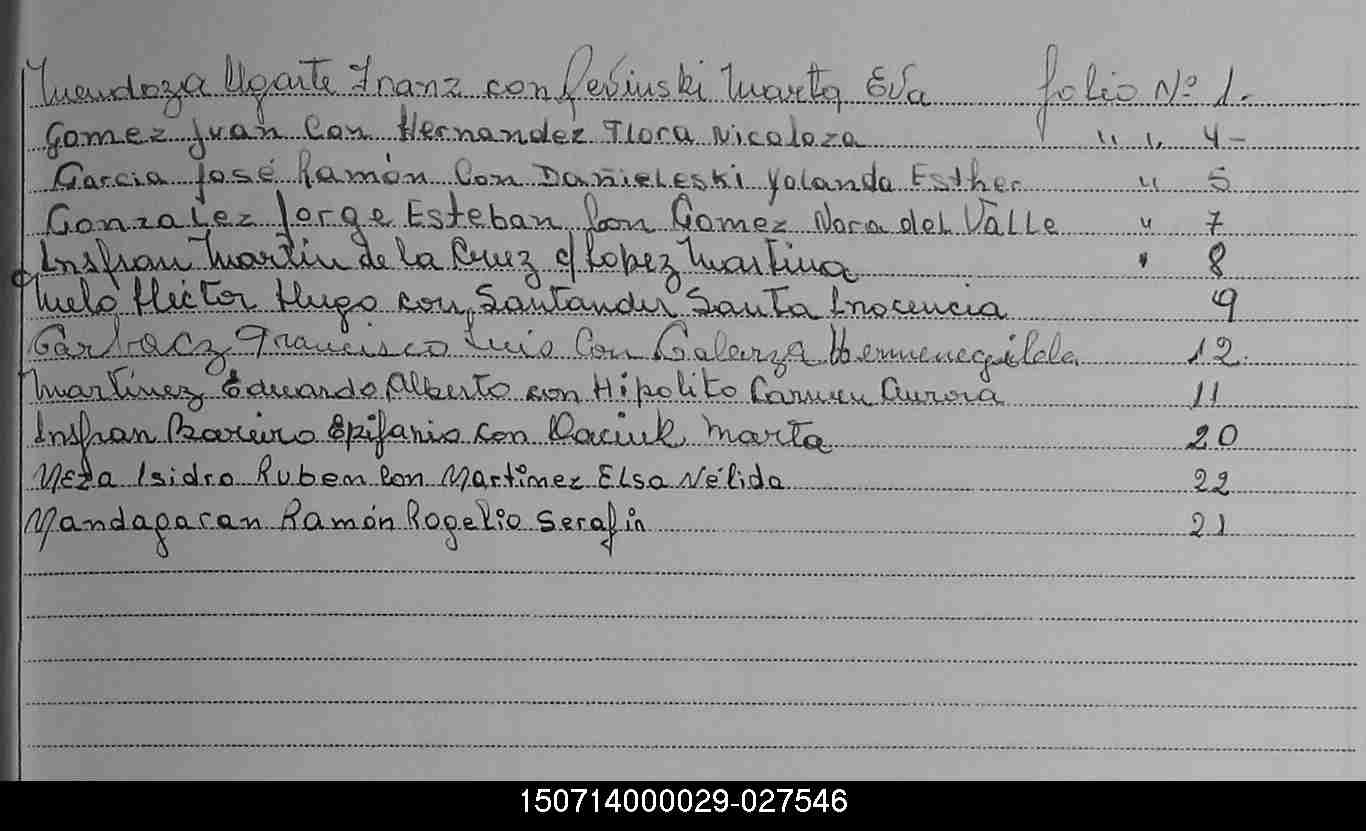 Mendoza Ugarte Franz con Levinski Marta Eva folio Nº 1.-
Gomez Juan Con Hernandez Flora Nicoloza " " 4-
Garcia José Ramón Con Danieleski Yolanda Esther " 5
Gonzalez Jorge Esteban Con Gomez Nora del Valle " 7
Insfran Martin de la Cruz c/ Lopez Martina " 8
Melo Hector Hugo con Santander Santa Inocencia 9
Garbacz Francisco Luis Con Galarza Hermenegilda 12.
Martinez Eduardo Alberto con Hipolito Carmen Aurora 11
Insfran Bareiro Epifanio con Daciuk Marta 20
Meza Isidro Ruben Con Martinez Elsa Nélida 22
Mandagaran Ramón Rogelio Serafin 21
150714000029-027546